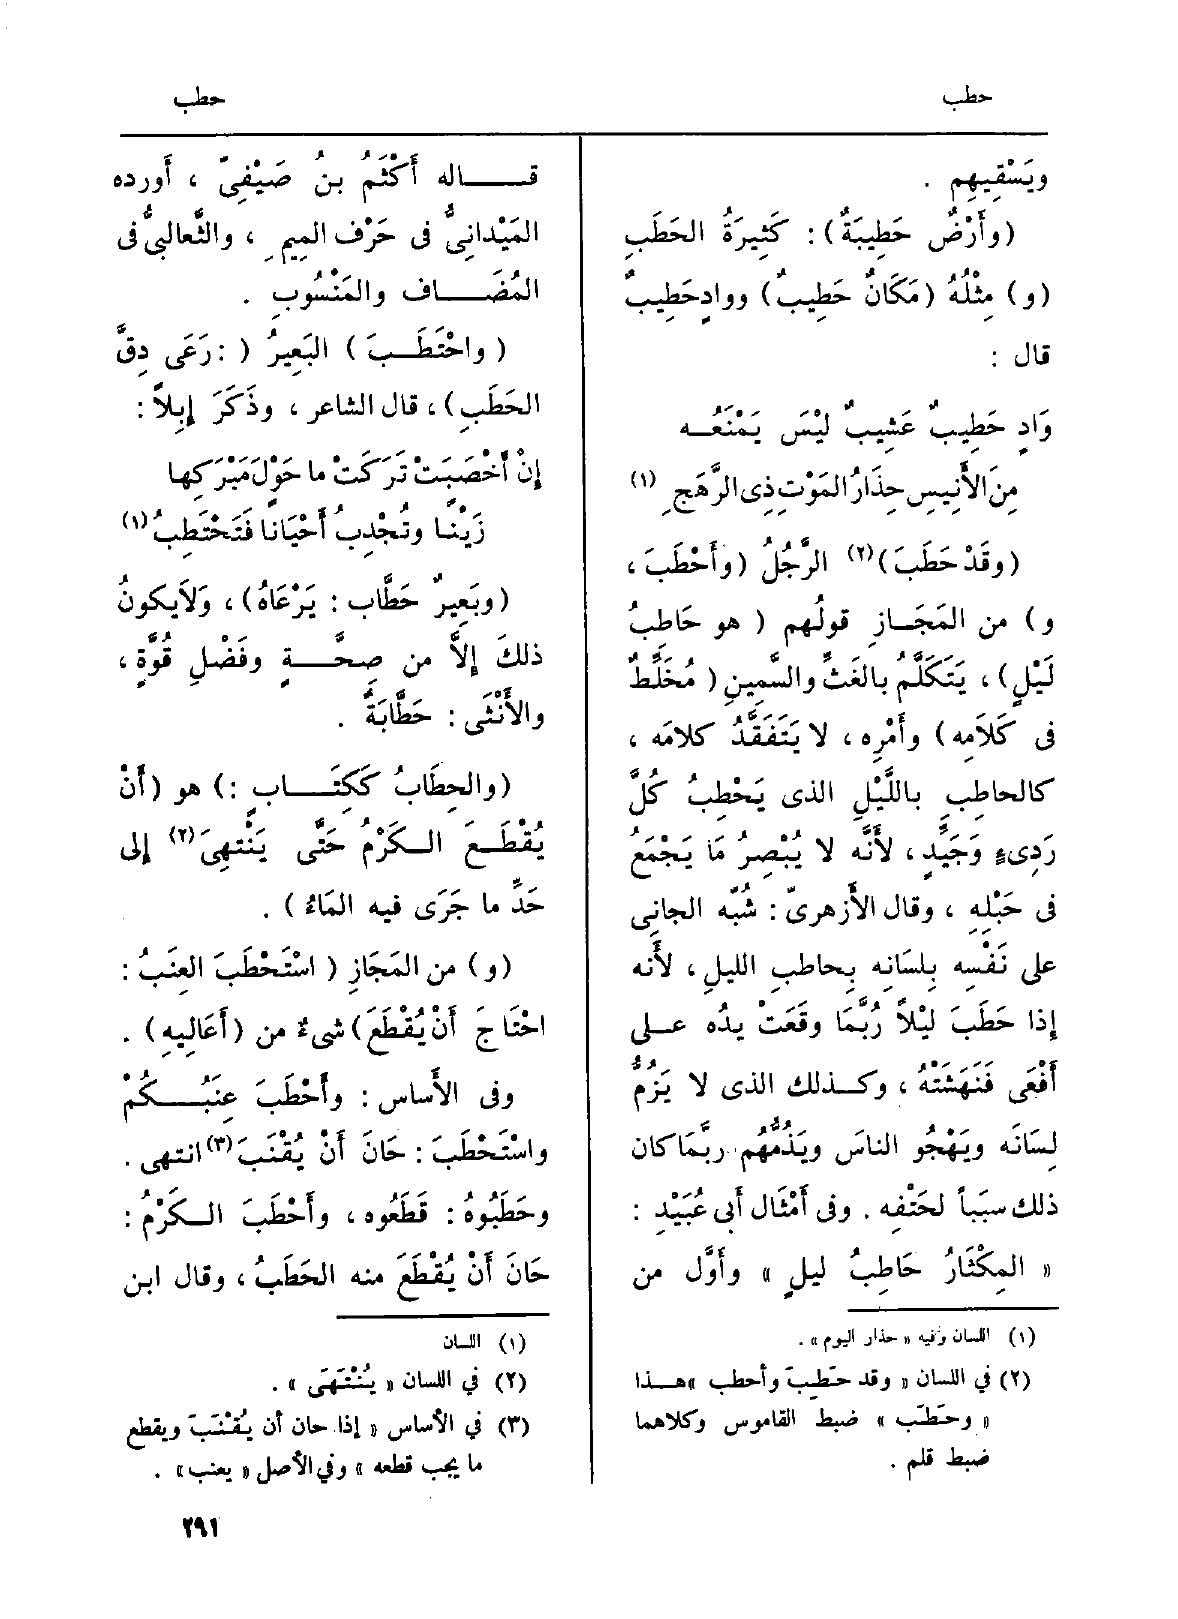 حطب
حطب
ويَسْقِيهِم .
(وأَرْضٌ حَطِيبَةٌ) : كَثِيرَةُ الحَطَبِ
(و) مِثْلُهُ (مَكَانٌ حَطِيبٌ) ووادٍ حَطِيبٌ
قال :
وَادٍ حَطِيبٌ عَشِيبٌ لَيْسَ يَمْنَعُـه
مِنَ الأَنِيسِ حِذَارُ المَوْتِ ذِى الرَّهَجِ (١)
(وقَدْ حَطَبَ) (٢) الرَّجُلُ (وأَحْطَبَ ،
و) من المَجَـازِ قولُهم ( هو حَاطِبُ
لَيْلٍ) ، يَتَكَلَّمُ بالغَثِّ والسَّمِينِ ( مُخَلِّطٌ
فى كَلَامِه) وأَمْرِه ، لا يَتَفَقَّدُ كلامَه ،
كالحاطِبِ باللَّيْلِ الذى يَحْطِبُ كُلَّ
رَدِىءٍ وَجَيِّدٍ ، لأَنَّه لا يُبْصِرُ مَا يَجْمَعُ
فى حَبْلِهِ ، وقال الأَزهرىّ : شُبِّه الجانِى
على نَفْسِه بِلسَانِه بحاطبِ الليلِ ، لأَنه
إِذا حَطَبَ لَيْلاً رُبَّمَا وقَعَتْ يدُه علـى
أَفْعَى فَنَهَشَتْهُ ، وكـذلك الذى لا يَزُمُّ
لِسَانَه ويَهْجُو الناسَ ويَذُمُّهُم ربَّمَا كان
ذلك سبَباً لحَتْفِه . وفى أَمْثَال أَبى عُبَيْدٍ :
« المِكْثَارُ حَاطِبُ ليلٍ » وأَوَّل من
(١) اللسان وفيه « حذار اليوم » .
(٢) في اللسان « وقد حَطِبَ وأحطب » هـذا
« وحَطَب » ضبط القاموس وكلاهما
ضبط قلم .
قـــاله أَكْثَمُ بنُ صَيْفِىّ ، أَورده
المَيْدانِىُّ فى حَرْف الميمِ ، والثَّعالبىُّ فى
المُضَــاف والمَنْسُوبِ .
( واحْتَطَـبَ ) البَعِيرُ ( : رَعَى دِقَّ
الحَطَبِ) ، قال الشاعر ، وذَكَرَ إِبِلاً :
إِنْ أَخْصَبَتْ تَرَكَتْ ما حَوْلَ مَبْرَكِها
زَيْنًـا وتُجْدِبُ أَحْيَانا فَتَحْتَطِبُ (١)
(وبَعِيرٌ حَطَّاب : يَرْعَاهُ) ، وَلَا يكونُ
ذلكَ إِلاَّ من صِحَّــةٍ وفَضْلِ قُوَّةٍ ،
والأُنْثَى : حَطَّابَةٌ .
(والحِطَابُ كَكِتَــابٍ :) هو (أَنْ
يُقْطَـعَ الـكَرْمُ حَتَّى يَنْتهِىَ (٢) إِلى
حَدِّ ما جَرَى فيه المَاءُ ) .
(و) من المَجَازِ ( اسْتَحْطَبَ العِنَبُ :
احْتَاجَ أَنْ يُقْطَعَ) شىءٌ من (أَعَالِيهِ) .
وفى الأَساس : وأَحْطَبَ عِنَبُـــكُمْ
واسْتَحْطَبَ : حَانَ أَنْ يُقْنَبَ (٣) انتهى .
وحَطَبُوهُ : قَطَعُوه ، وأَحْطَبَ الـكَرْمُ :
حَانَ أَنْ يُقْطَعَ منه الحَطَبُ ، وقال ابن
(١) اللسان
(٢) في اللسان « يُنْتَهَى » .
(٣) في الأساس « إذا حان أن يُقْنَبَ ويقطع
ما يجب قطعه » وفي الأصل « يعنب » .
٢٩١